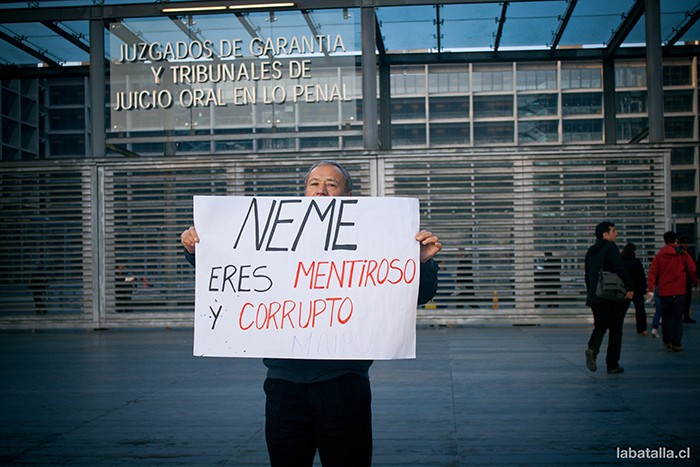 JUZGADOS DE GARANTIA
Y TRIBUNALES DE
JUICIO ORAL EN LO PENAL
NEME
ERES MENTIROSO
Y CORRUPTO
labatalla.cl